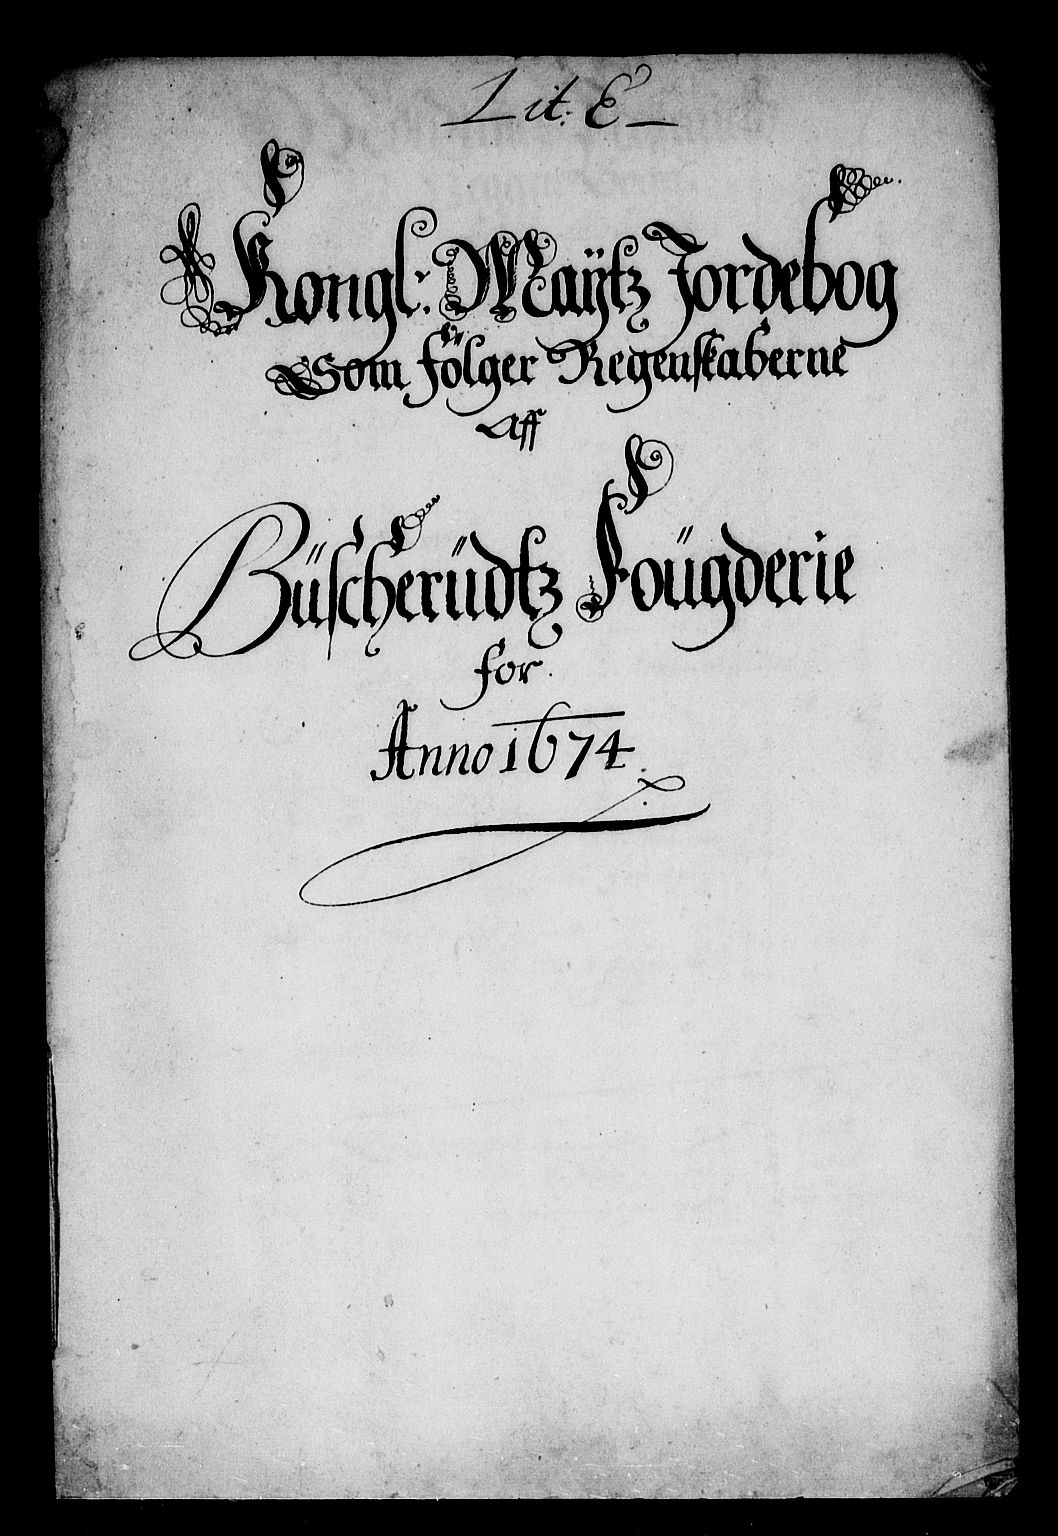 Lit: E
Kongl: Maÿtz Jordebog
Som fölger Regenskaberne
Aff
Büscherüdtz Foügderie
for
Anno 1674